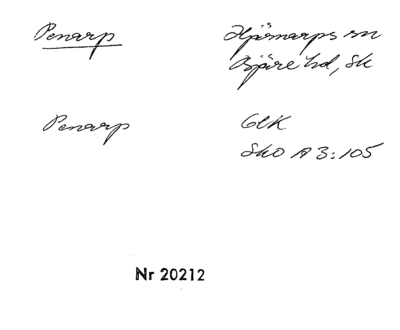 Penarp Hjärnarps sn
Bjäre hd, Sk
Penarp GEK
Sko A 3:105
Nr 20212